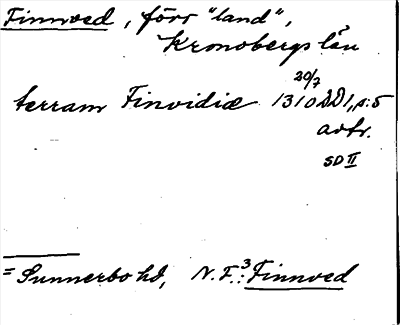 Finnved, förr "land",
Kronobergs län
20/7
terram Finvidiæ 1310 DD1, s:5
avtr.
SD II
= Sunnerbo hd, N.F.:3 Finnved